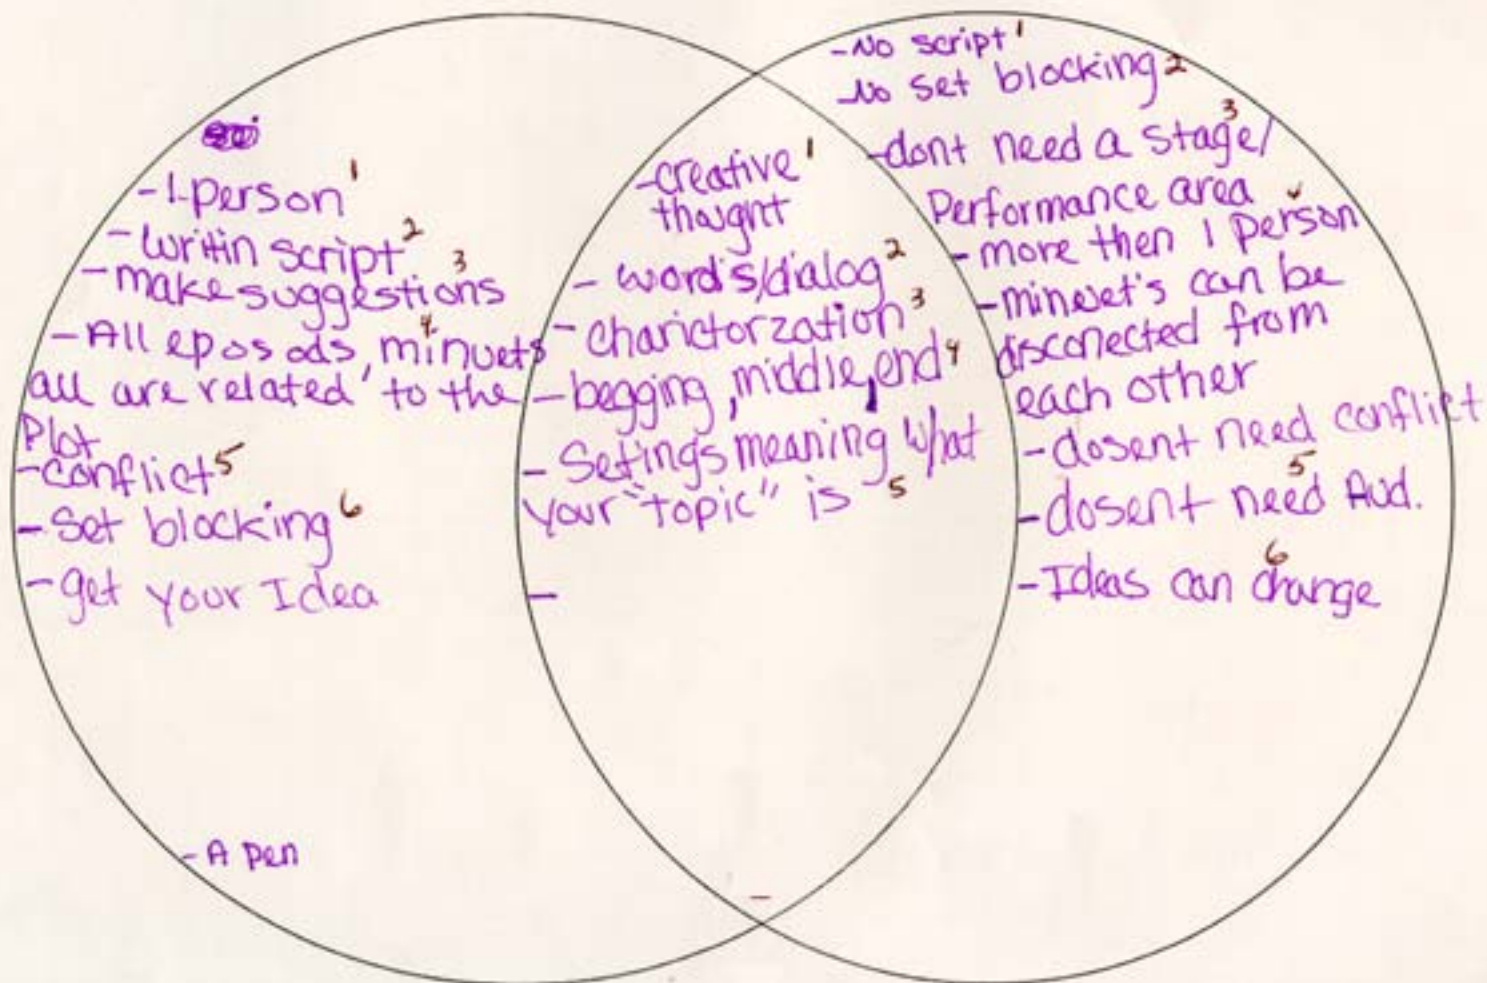 -1-person 1
- writin script 2
- make suggestions 3
- All eposods, minuets 4
all are related to the
Plot
- conflict 5
- Set blocking 6
- get your Idea
- A pen
- creative 1
thought
- word's/dialog 2
- charictorzation 3
- begging, middle, end 4
- Setings meaning what
your "topic" is 5
-
-
- No script 1
- No set blocking 2
- dont need a stage/ 3
Performance area
- more then 1 person 4
- minuet's can be
disconected from
each other
- dosent need conflict
- dosent need Aud. 5
- Ideas can change 6